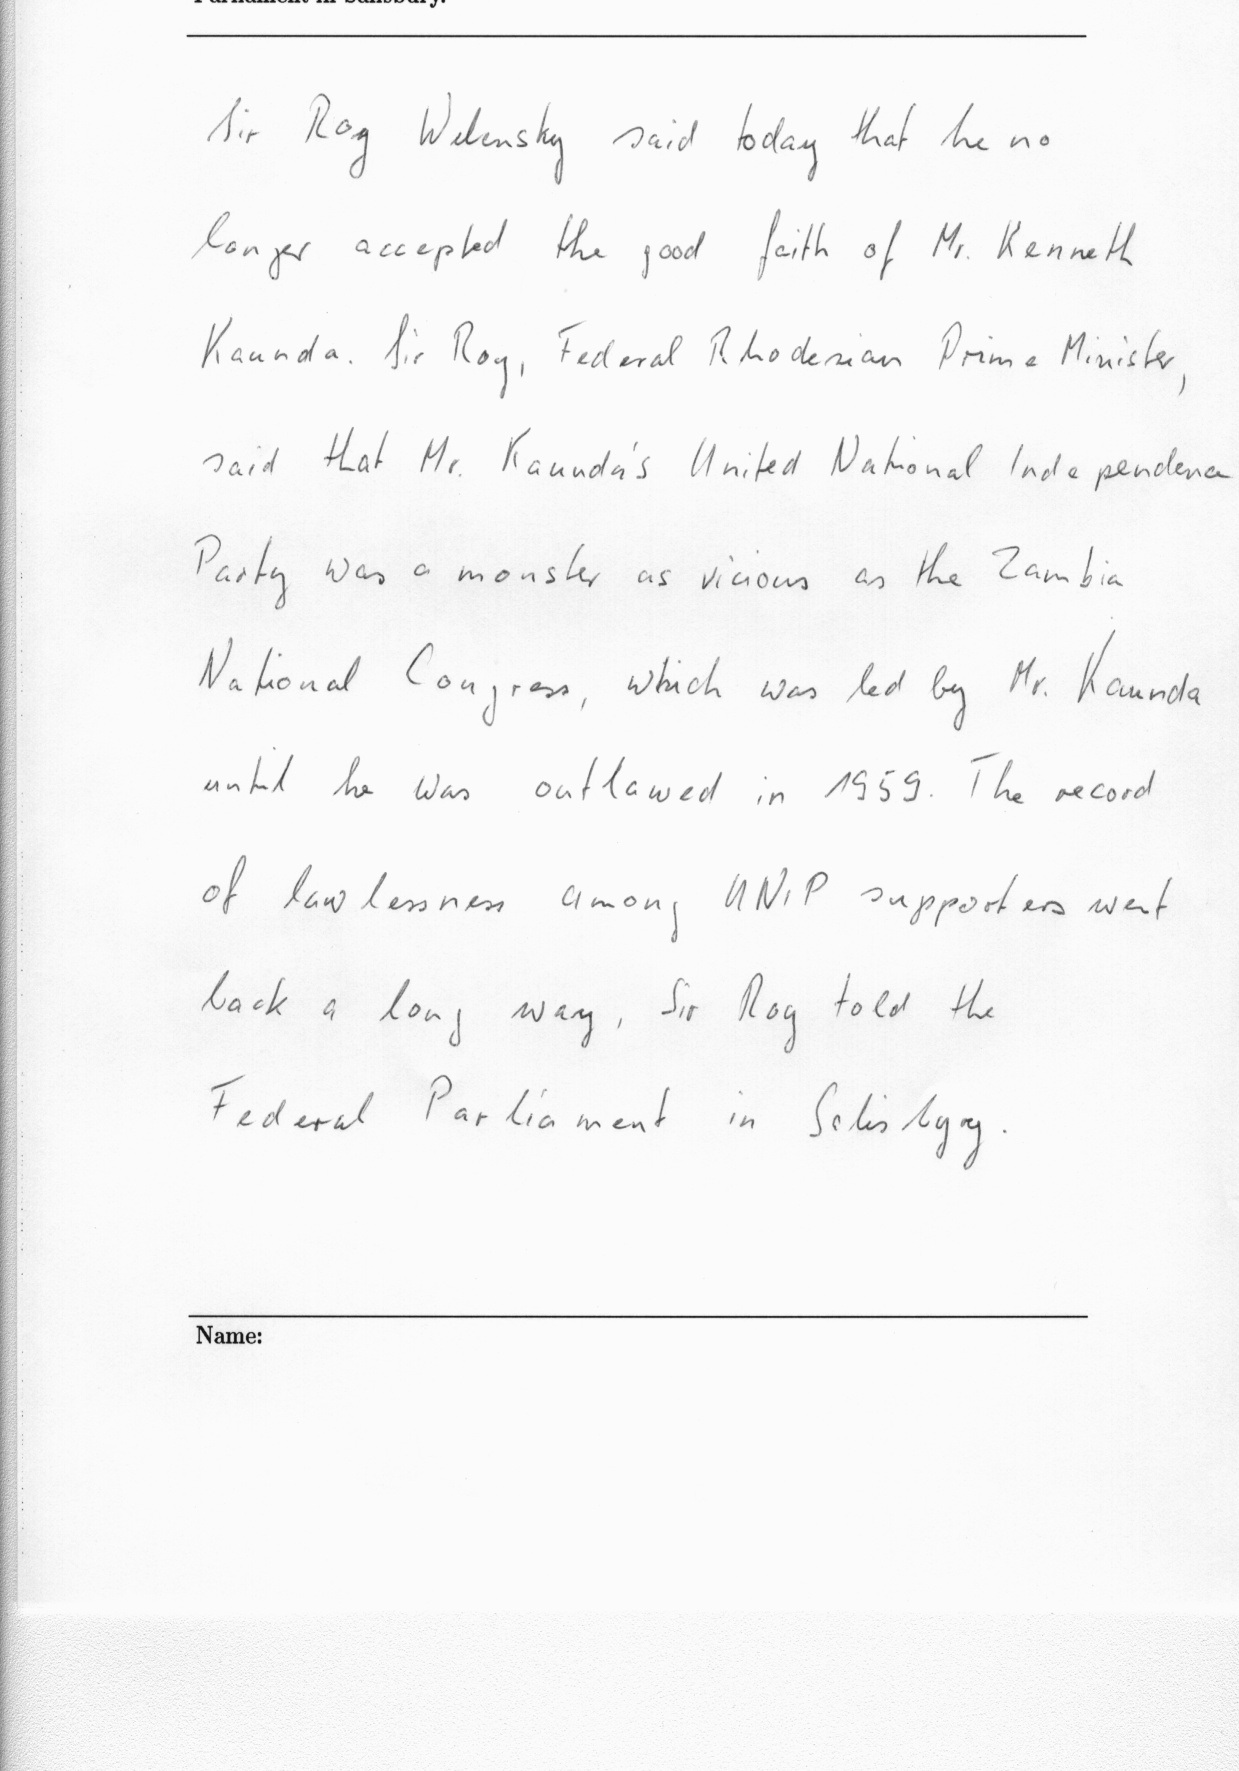 Parliament in Salisbury.
Sir Roy Welensky said today that he no
longer accepted the good faith of Mr. Kenneth
Kaunda. Sir Roy, Federal Rhodesian Prime Minister,
said that Mr. Kaunda's United National Independence
Party was a monster as vicious as the Zambia
National Congress, which was led by Mr. Kaunda
until he was outlawed in 1959. The record
of lawlessness among UNIP supporters went
back a long way, Sir Roy told the
Federal Parliament in Salisbyry.
Name: